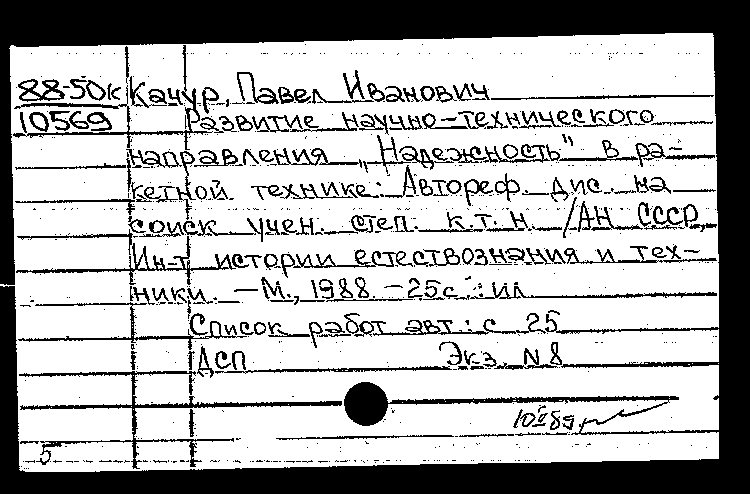 88-50к Качур, Павел Иванович
10569 Развитие научно-технического
направления „Надежность" в ра-
кетной технике: Автореф. дис. на
соиск учен. степ. к.т.н. /АН СССР,
Ин-т истории естествознания и тех-
ники. -М., 1988. -25с.: ил
Список работ авт.: с 25
ДСП Экз. N8
5